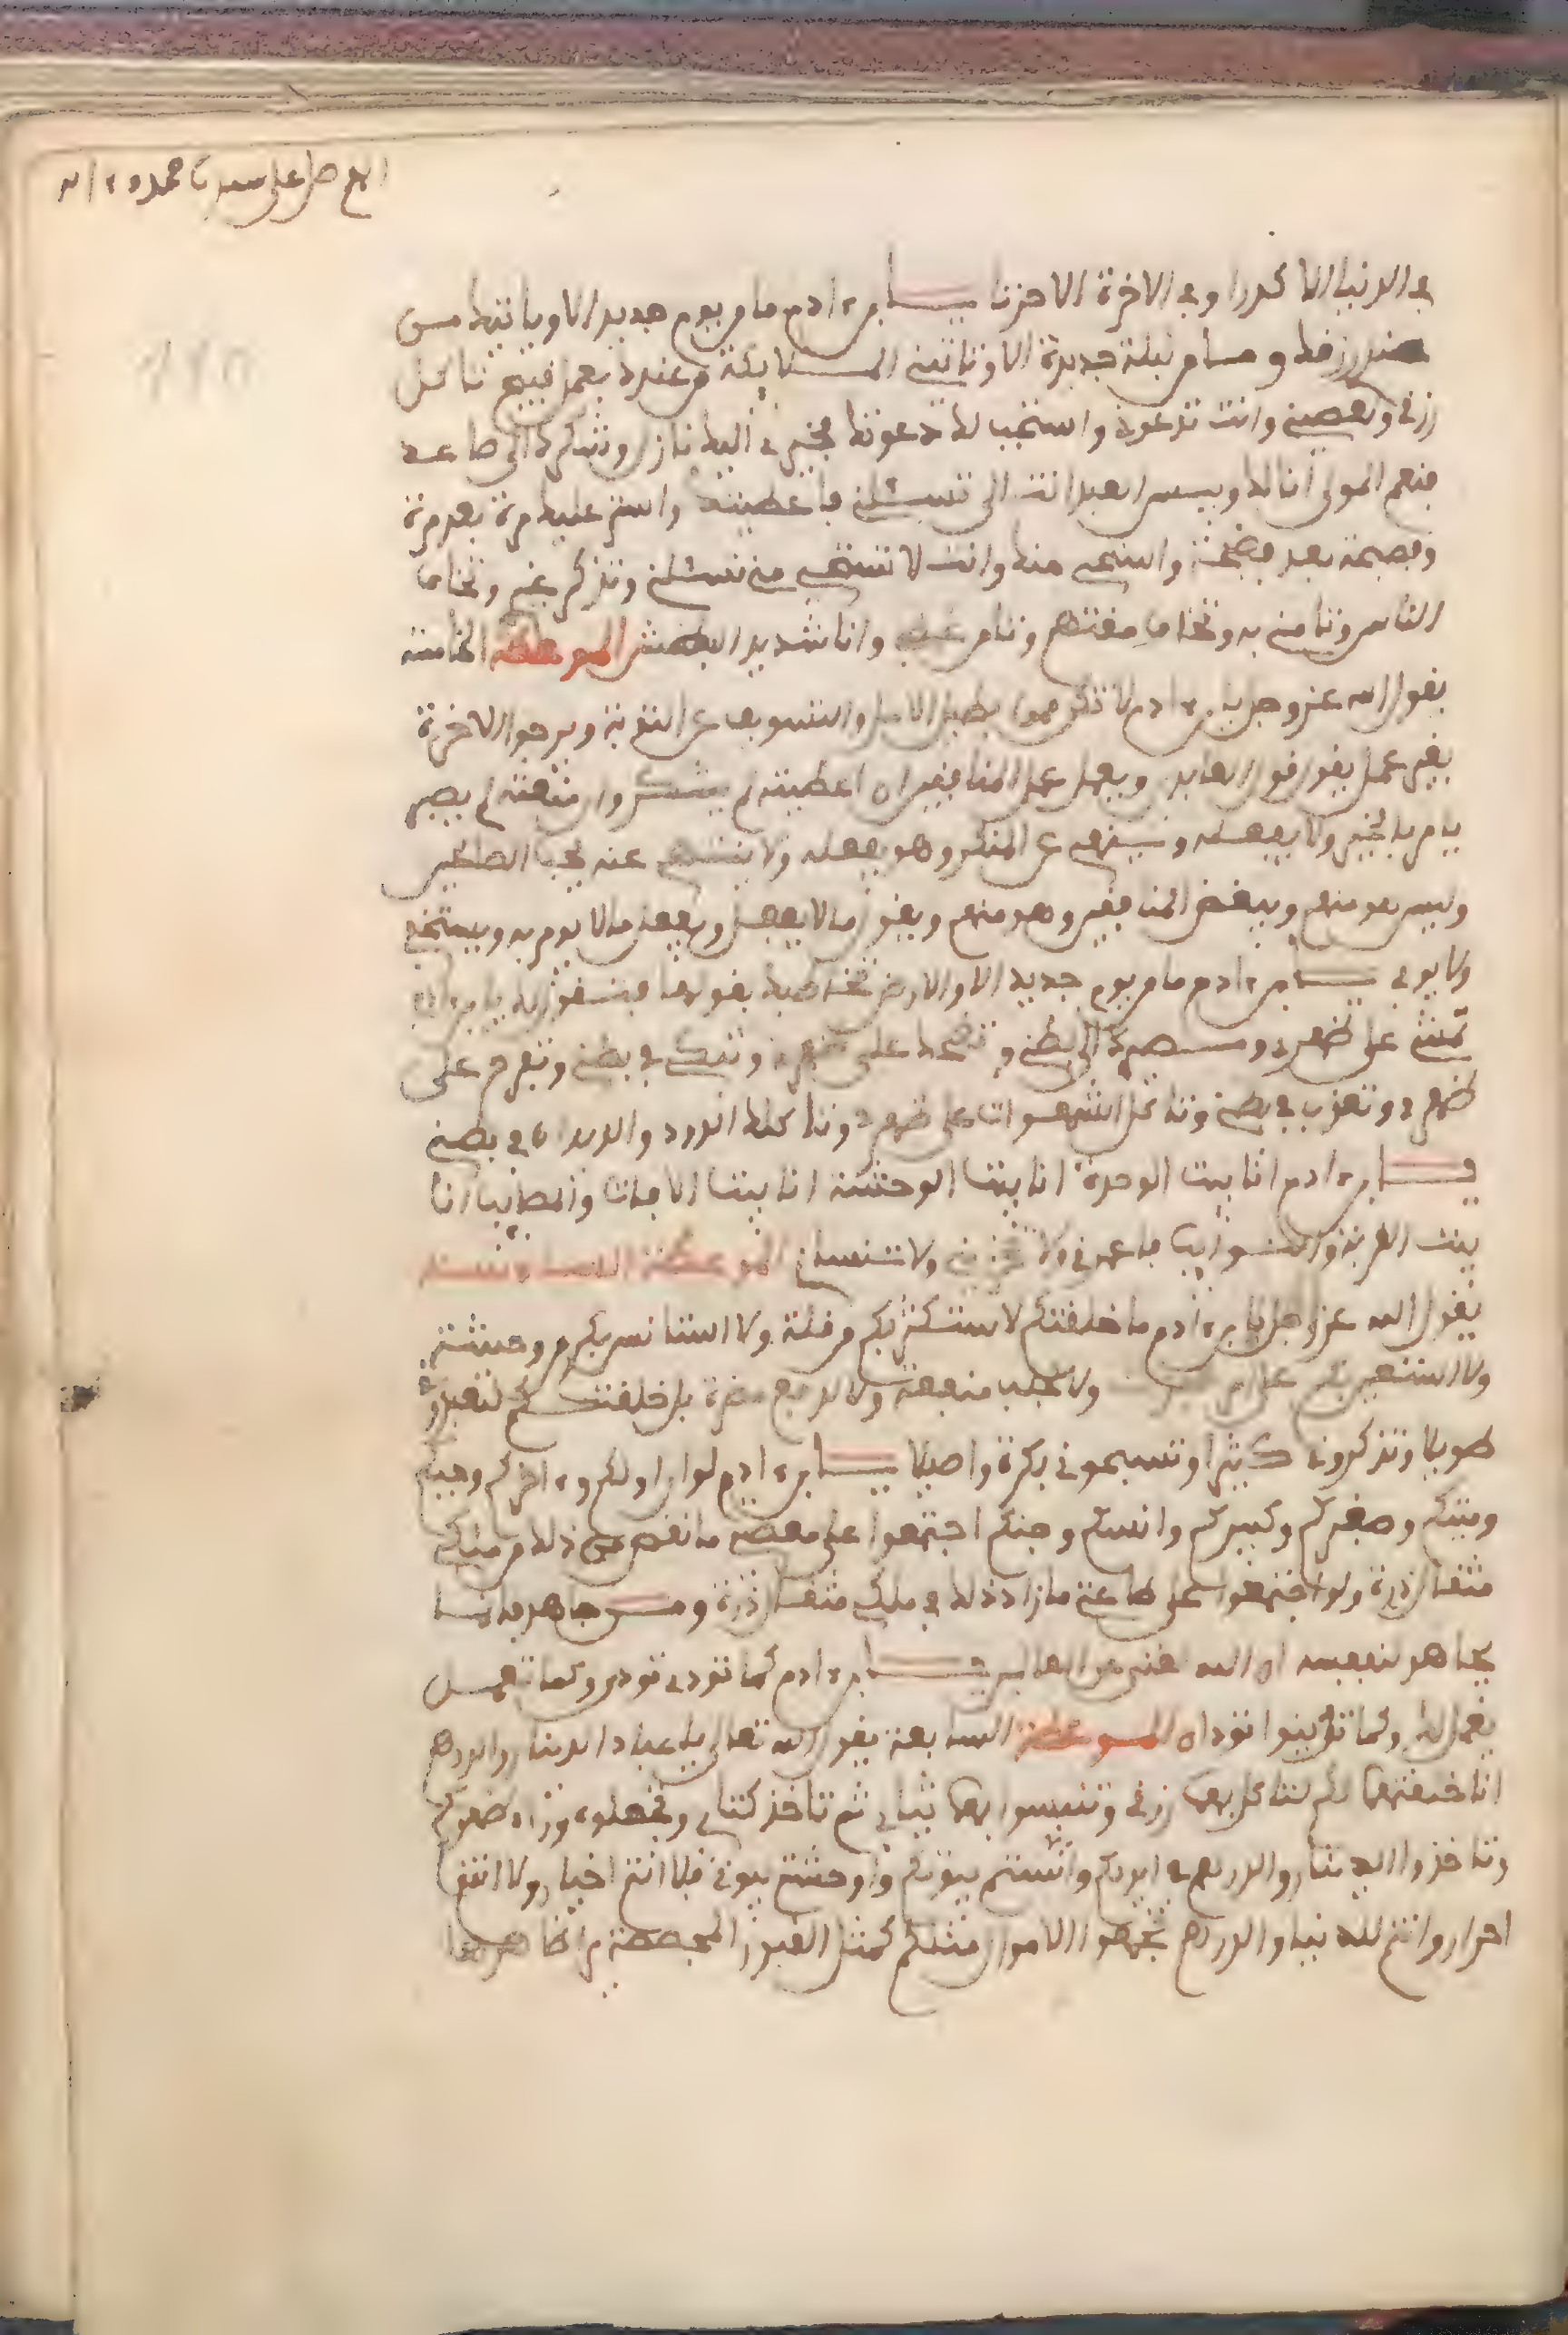 اللهم صل على سيدنا محمد وءاله
في الدنيا الا كدرا وفي الاخرة الا حزنا يا بن ءادم ما من يوم جديد الا وياتيك من
عندي رزقك وما من ليلة جديدة الا وتاتيني الملايكة من عندك بعمل قبيح تاكل
رزقي وتعصيني وانت تدعوني واستجيب لك دعوتك خيري اليك نازل وشرك الي صاعد
فنعم المولى انا لك وبيس العبد انت لي تسئلني فاعطيك واستر عليك مرة بعد مرة
وفضيحة بعد فضيحة واستحي منك وانت لا تستحي مني تنساني وتذكر غيري وتخاف
الناس وتامن مني وتخاف مقتهم وتامن غضبي وانا شديد البطش الموعظة الخامسة
يقول الله عز وجل يا بن ءادم لا تكن ممن يطيل الامل والتسويف على التوبة ويرجو الاخرة
بغير عمل يقول قول العابد ويعمل عمل المنافقين ان اعطيته لم يشكر وان منعته لم يصبر
يامر بالخير ولا يفعله وينهى عن المنكر وهو يفعله ولا ينتهي عنه يحب الصالحين
وليس هو منهم ويبغض المنافقين وهو منهم ويقول ما لا يفعل ويفعل ما لا يومر به ويستوفي
ولا يوفي يا بن ءادم ما من يوم جديد الا والارض تخاطبك بقولها فتقول لك يا بن ءادم
تمشي على ظهري ومصيرك الى بطني وتضحك على ظهري وتبكي في بطني وتفرح على
ظهري وتعذب في بطني وتاكل الشهوات على ظهري وتاكلك الدود والديدان في بطني
يا بن ءادم انا بيت الوحدة انا بيت الوحشة انا بيت الافات والمصايب انا
بيت الغربة والنوايب فاعمرني ولا تخربني ولا تنساني الموعظة السادسة
يقول الله عز وجل يا بن ءادم ما خلقتكم لاستكثر بكم من قلة ولا استانس بكم من وحشة
ولا استعين بكم على امر ولا لجلب منفعة ولا لدفع مضرة بل خلقتكم لتعبدوني
طويلا وتذكروني كثيرا وتسبحوني بكرة واصيلا يا بن ءادم لو ان اولكم وءاخركم وحيكم
وميتكم وصغيركم وكبيركم وانسكم وجنكم اجتمعوا على معصيتي ما نقص من ذلك من ملكي
مثقال ذرة ولو اجتمعوا على طاعتي ما زاد ذلك في ملكي مثقال ذرة ومن جاهد فانما
يجاهد لنفسه ان الله غني عن العالمين يا بن ءادم كما تودي تودى وكما تعمل
يعمل لك وكما تدينوا تودان الموعظة السابعة يقول الله تعالى يا عباد الدينار والدرهم
انا خلقتهما لكم لتاكل بهما رزقي وتلبسوا بهما ثيابي ثم تاخذ كتابي وتجعلوه وراء ظهوركم
وتاخذوا الدينار والدرهم في ايديكم وانستم بيوتكم واوحشتم بيوتي فلا انتم اخيار ولا انتم
احرار وانتم للدنيا والدرهم تجمعوا الاموال مثلكم كمثل القبور المجصصة من ظاهرها